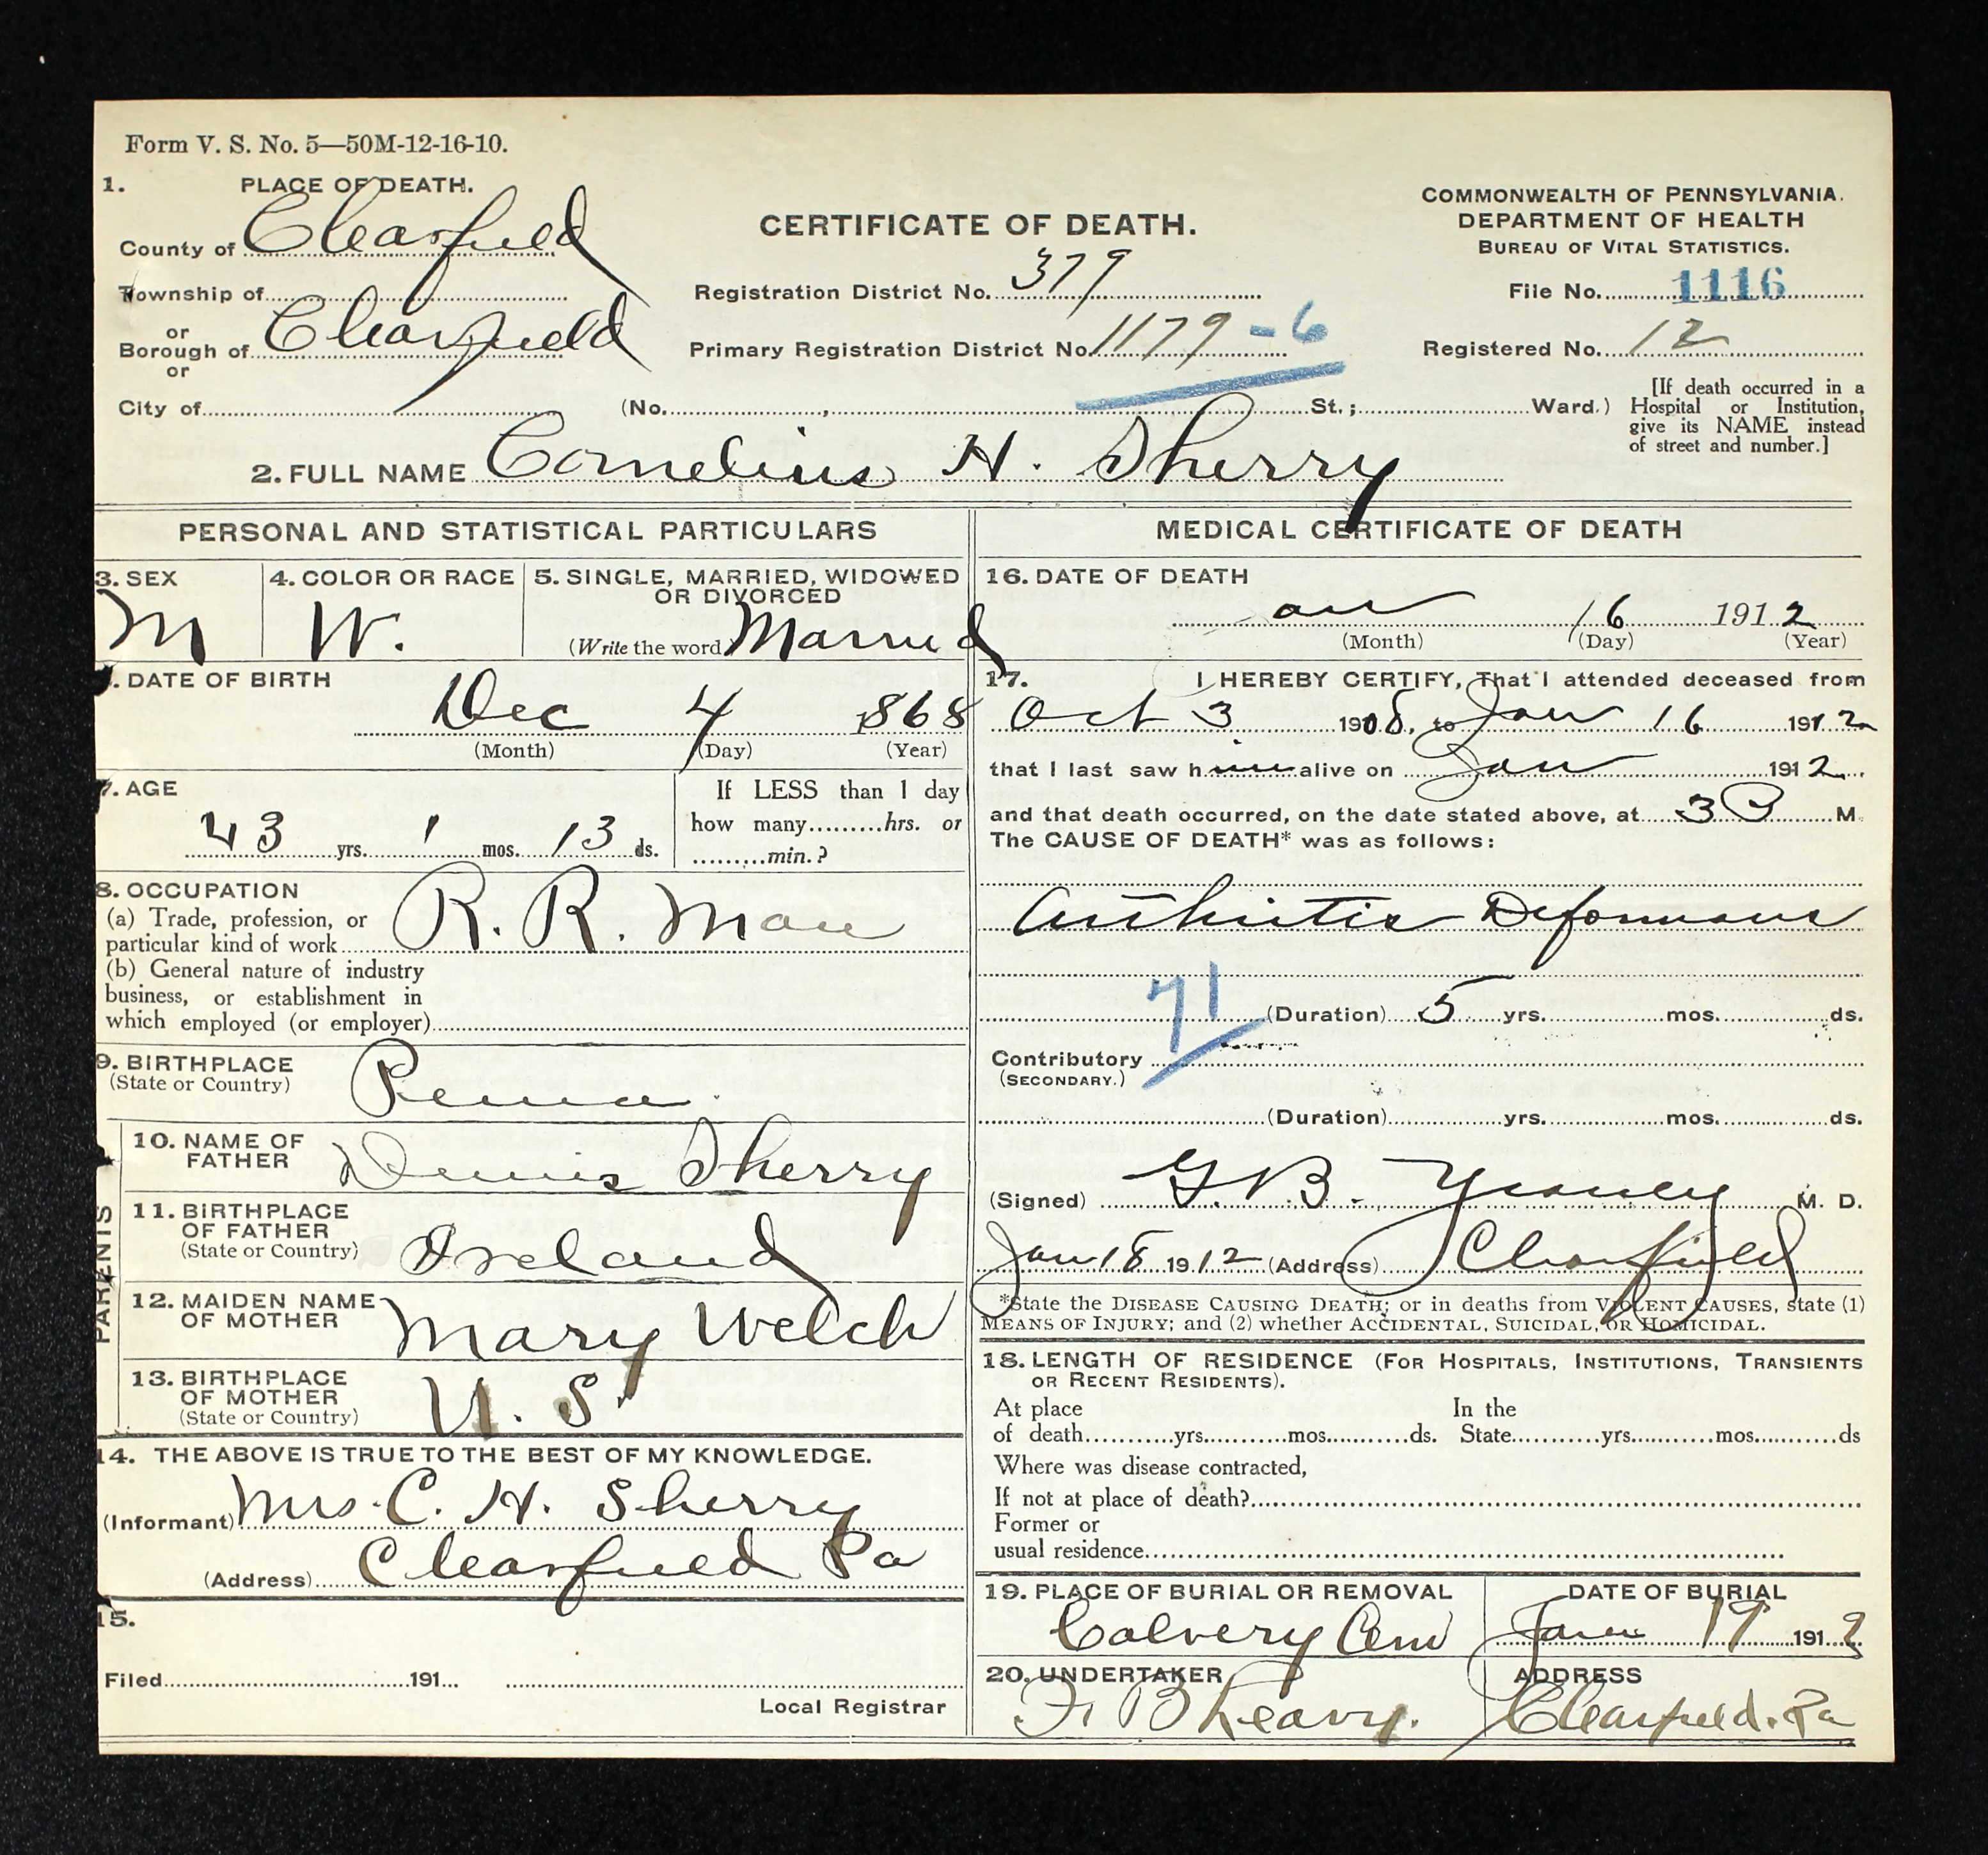 Form V. S. No. 5—50M-12-16-10.
1. PLACE OF DEATH.
County of Clearfield
Township of
or
Borough of Clearfield
or
City of
CERTIFICATE OF DEATH.
Registration District No. 379
Primary Registration District No. 1179 -6
(No. , St.; Ward.)
COMMONWEALTH OF PENNSYLVANIA.
DEPARTMENT OF HEALTH
BUREAU OF VITAL STATISTICS.
File No. 1116
Registered No. 12
[If death occurred in a
Hospital or Institution,
give its NAME instead
of street and number.]
2. FULL NAME Cornelius H. Sherry
PERSONAL AND STATISTICAL PARTICULARS
3. SEX
M
4. COLOR OR RACE
W.
5. SINGLE, MARRIED, WIDOWED
OR DIVORCED
(Write the word) Married
. DATE OF BIRTH
Dec 4 1868
(Month) (Day) (Year)
7. AGE
43 yrs. 1 mos. 13 ds.
If LESS than 1 day
how many hrs. or
min.?
8. OCCUPATION
(a) Trade, profession, or
particular kind of work R. R. Man
(b) General nature of industry
business, or establishment in
which employed (or employer)
9. BIRTHPLACE
(State or Country) Penna.
PARENTS
10. NAME OF
FATHER Dennis Sherry
11. BIRTHPLACE
OF FATHER
(State or Country) Ireland
12. MAIDEN NAME
OF MOTHER Mary Welch
13. BIRTHPLACE
OF MOTHER
(State or Country) U. S.
14. THE ABOVE IS TRUE TO THE BEST OF MY KNOWLEDGE.
(Informant) Mrs. C. H. Sherry
(Address) Clearfield Pa
15.
Filed 191
Local Registrar
MEDICAL CERTIFICATE OF DEATH
16. DATE OF DEATH
Jan 16 1912
(Month) (Day) (Year)
17. I HEREBY CERTIFY, That I attended deceased from
Oct 3 1908, to Jan 16 1912
that I last saw him alive on Jan 1912
and that death occurred, on the date stated above, at 3 P M.
The CAUSE OF DEATH* was as follows:
Arthritis Deformans
71
(Duration) 5 yrs. mos. ds.
Contributory
(SECONDARY.)
(Duration) yrs. mos. ds.
(Signed) G. B. M. D.
Jan 18 1912 (Address) Clearfield
*State the DISEASE CAUSING DEATH; or in deaths from VIOLENT CAUSES, state (1)
MEANS OF INJURY; and (2) whether ACCIDENTAL, SUICIDAL, OR HOMICIDAL.
18. LENGTH OF RESIDENCE (FOR HOSPITALS, INSTITUTIONS, TRANSIENTS
OR RECENT RESIDENTS).
At place In the
of death yrs. mos. ds. State yrs. mos. ds
Where was disease contracted,
If not at place of death?
Former or
usual residence
19. PLACE OF BURIAL OR REMOVAL
Calvery Cem
DATE OF BURIAL
Jan 19 1912
20. UNDERTAKER
F. B Leavy.
ADDRESS
Clearfield. Pa